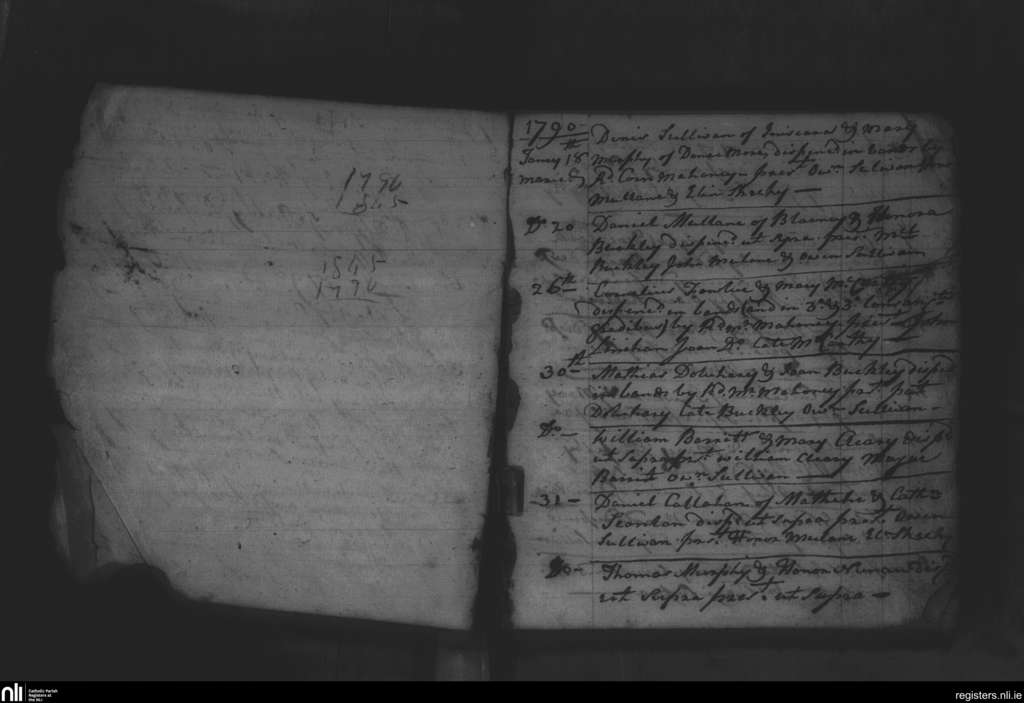 1796
1845
1845
1796
1790
Janry 18th
Denis Sullivan of Iniscara & Mary
Murphy of Donoemore, dispensed in banns by
Rd. Corns Mahoney prest. Own. Sullivan
Mullane & Elin Sheehy —
Do 20 Daniel Mullane of Blarney & Honora
Buckley dispensd. ut supra prest. Matt
Buckley John Mullane & Owen Sullivan
26th Cornelius & Mary McCarthy
dispensd. in banns (and in 3o & 3o consang.
) by Rd. Mr. Mahoney prest.
Joan Do. Cate McCarthy —
30th — Mathias Dolohery & Joan Buckley dispd.
in banns by Rd. Mr. Mahoney prst. Patt
Dolohery Cate Buckley Own. Sullivan —
Do. — William Barrett & Mary Cleary dispd.
ut supra prst. William Cleary
Barrett Own. Sullivan —
31 — Daniel Callahan of & Cathe
Scanlan dispd. ut supra prest. Owen
Sullivan prst. Honor Mullane Eln. Sheehy
Do — Thomas Murphy & Honora Nunan disp
ut supra prest. ut supra —
nli
Catholic Parish
Registers at
the NLI
registers.nli.ie